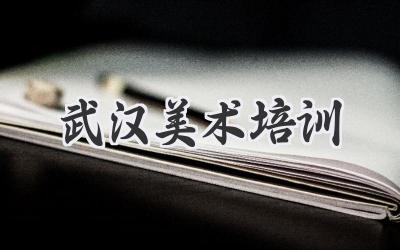 武汉美术培训